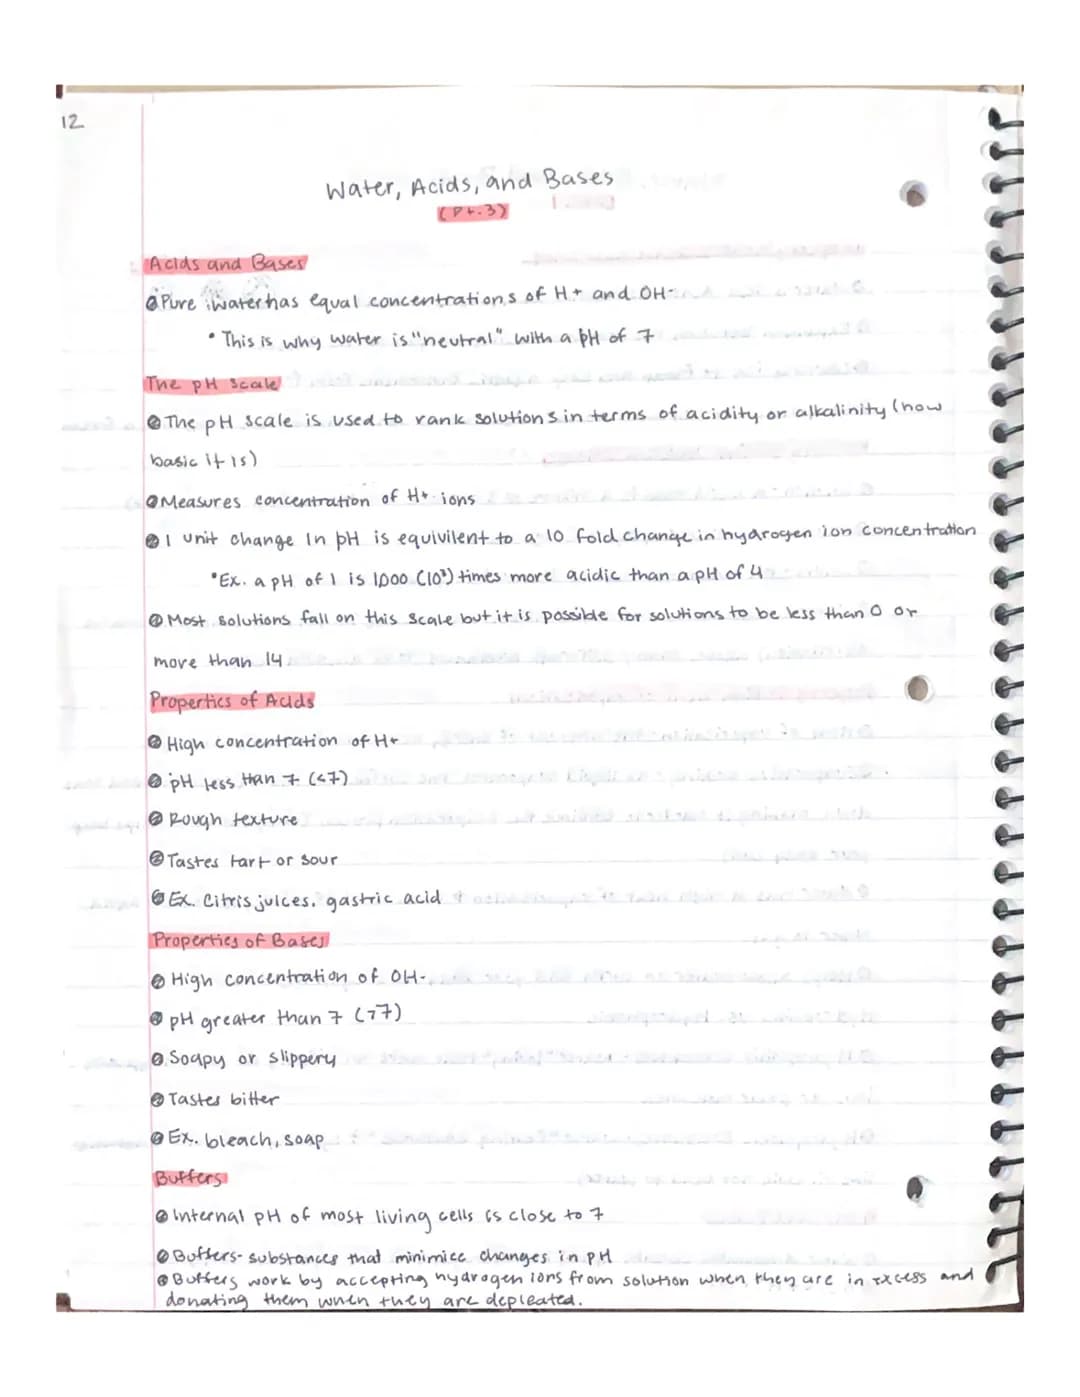 12
Water, Acids, and Bases
(Pt.3)
Acids and Bases
Pure water has equal concentrations of H+ and OH-
• This is why water is "neutral" with a pH of 7
The pH Scale
The pH scale is used to rank solutions in terms of acidity or alkalinity (how
basic it is)
Measures concentration of H+ ions
1 unit change in pH is equivilent to a 10 fold change in hydrogen ion concentration
•Ex. a pH of 1 is 1,000 (10³) times more acidic than a pH of 4
Most solutions fall on this scale but it is possible for solutions to be less than 0 or
more than 14
Properties of Acids
High concentration of H+
pH less than 7 (<7)
Rough texture
Tastes tart or sour
Ex. Citris juices, gastric acid
Properties of Bases
High concentration of OH-
pH greater than 7 (>7)
Soapy or slippery
Tastes bitter
Ex. bleach, soap
Buffers
Internal pH of most living cells is close to 7
Buffers- substances that minimize changes in pH
Buffers work by accepting hydrogen ions from solution when they are in excess and
donating them when they are depleated.